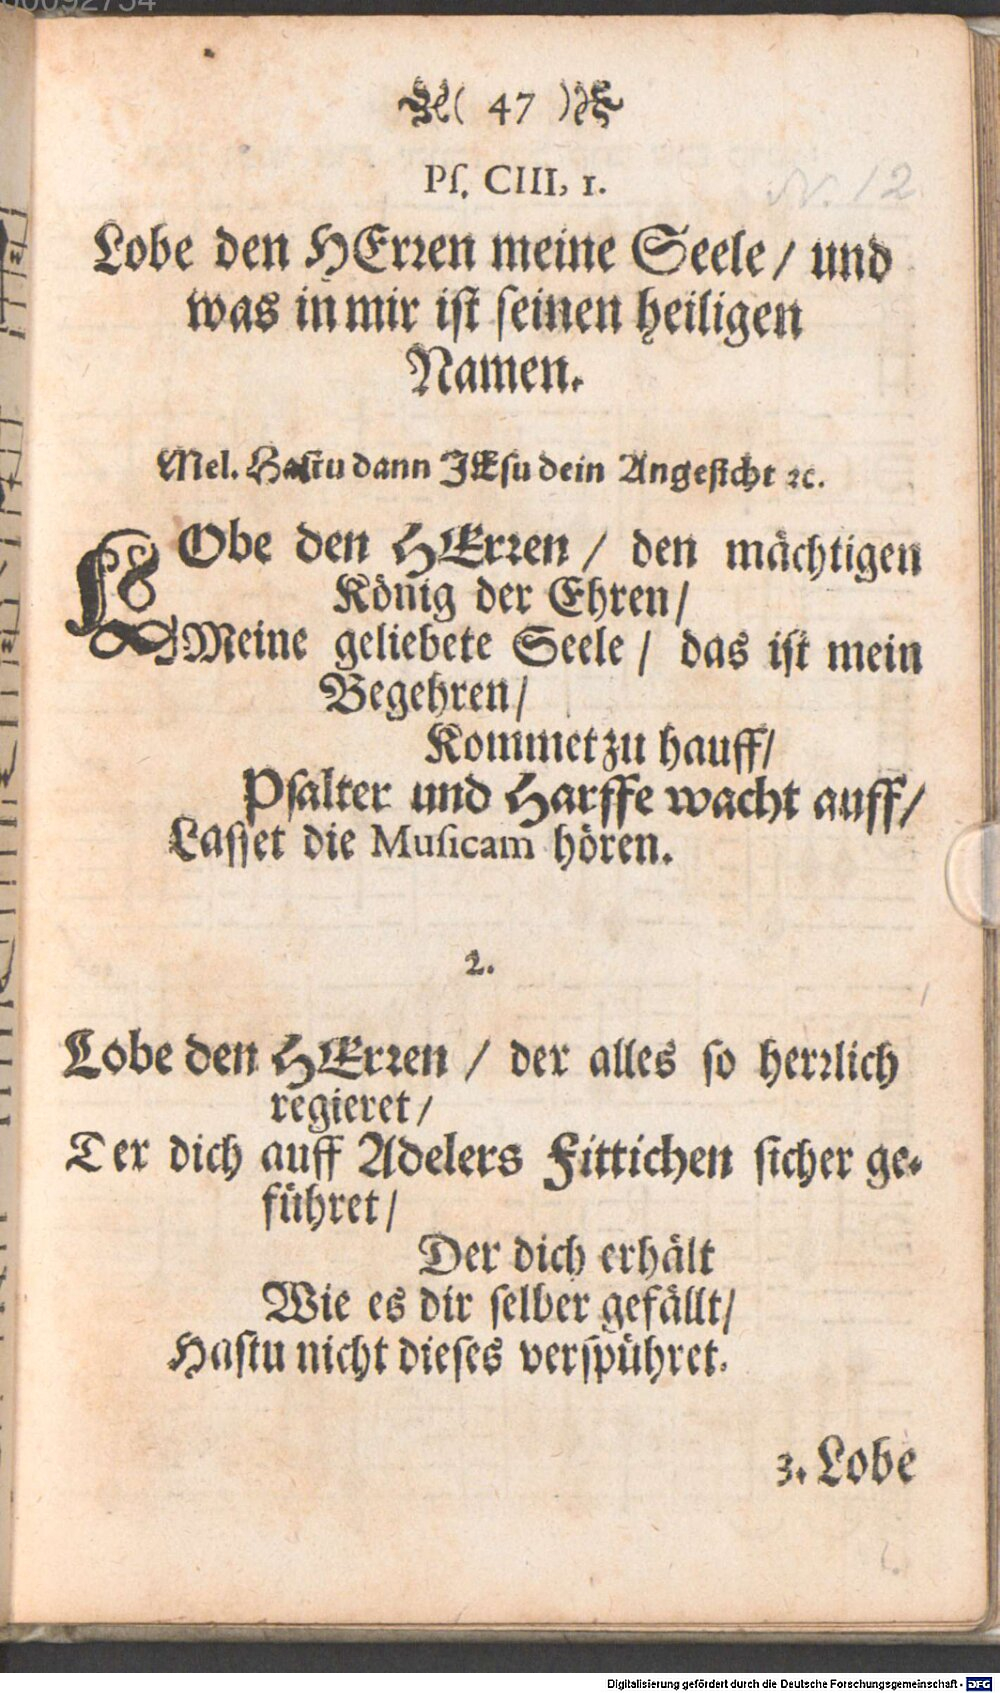 ( 47 )
Pſ. CIII, 1.
N. 12
Lobe den HErꝛen meine Seele / und
was in mir iſt ſeinen heiligen
Namen.
Mel. Haſtu dann JEſu dein Angeſicht ꝛc.
LObe den HErꝛen / den mächtigen
König der Ehren /
Meine geliebete Seele / das iſt mein
Begehren /
Kommet zu hauff /
Pſalter und Harffe wacht auff /
Laſſet die Muſicam hören.
2.
Lobe den HErꝛen / der alles ſo herꝛlich
regieret /
Der dich auff Adelers Fittichen ſicher ge-
führet /
Der dich erhält
Wie es dir ſelber gefällt /
Haſtu nicht dieſes verſpühret.
3. Lobe
Digitalisierung gefördert durch die Deutsche Forschungsgemeinschaft - DFG